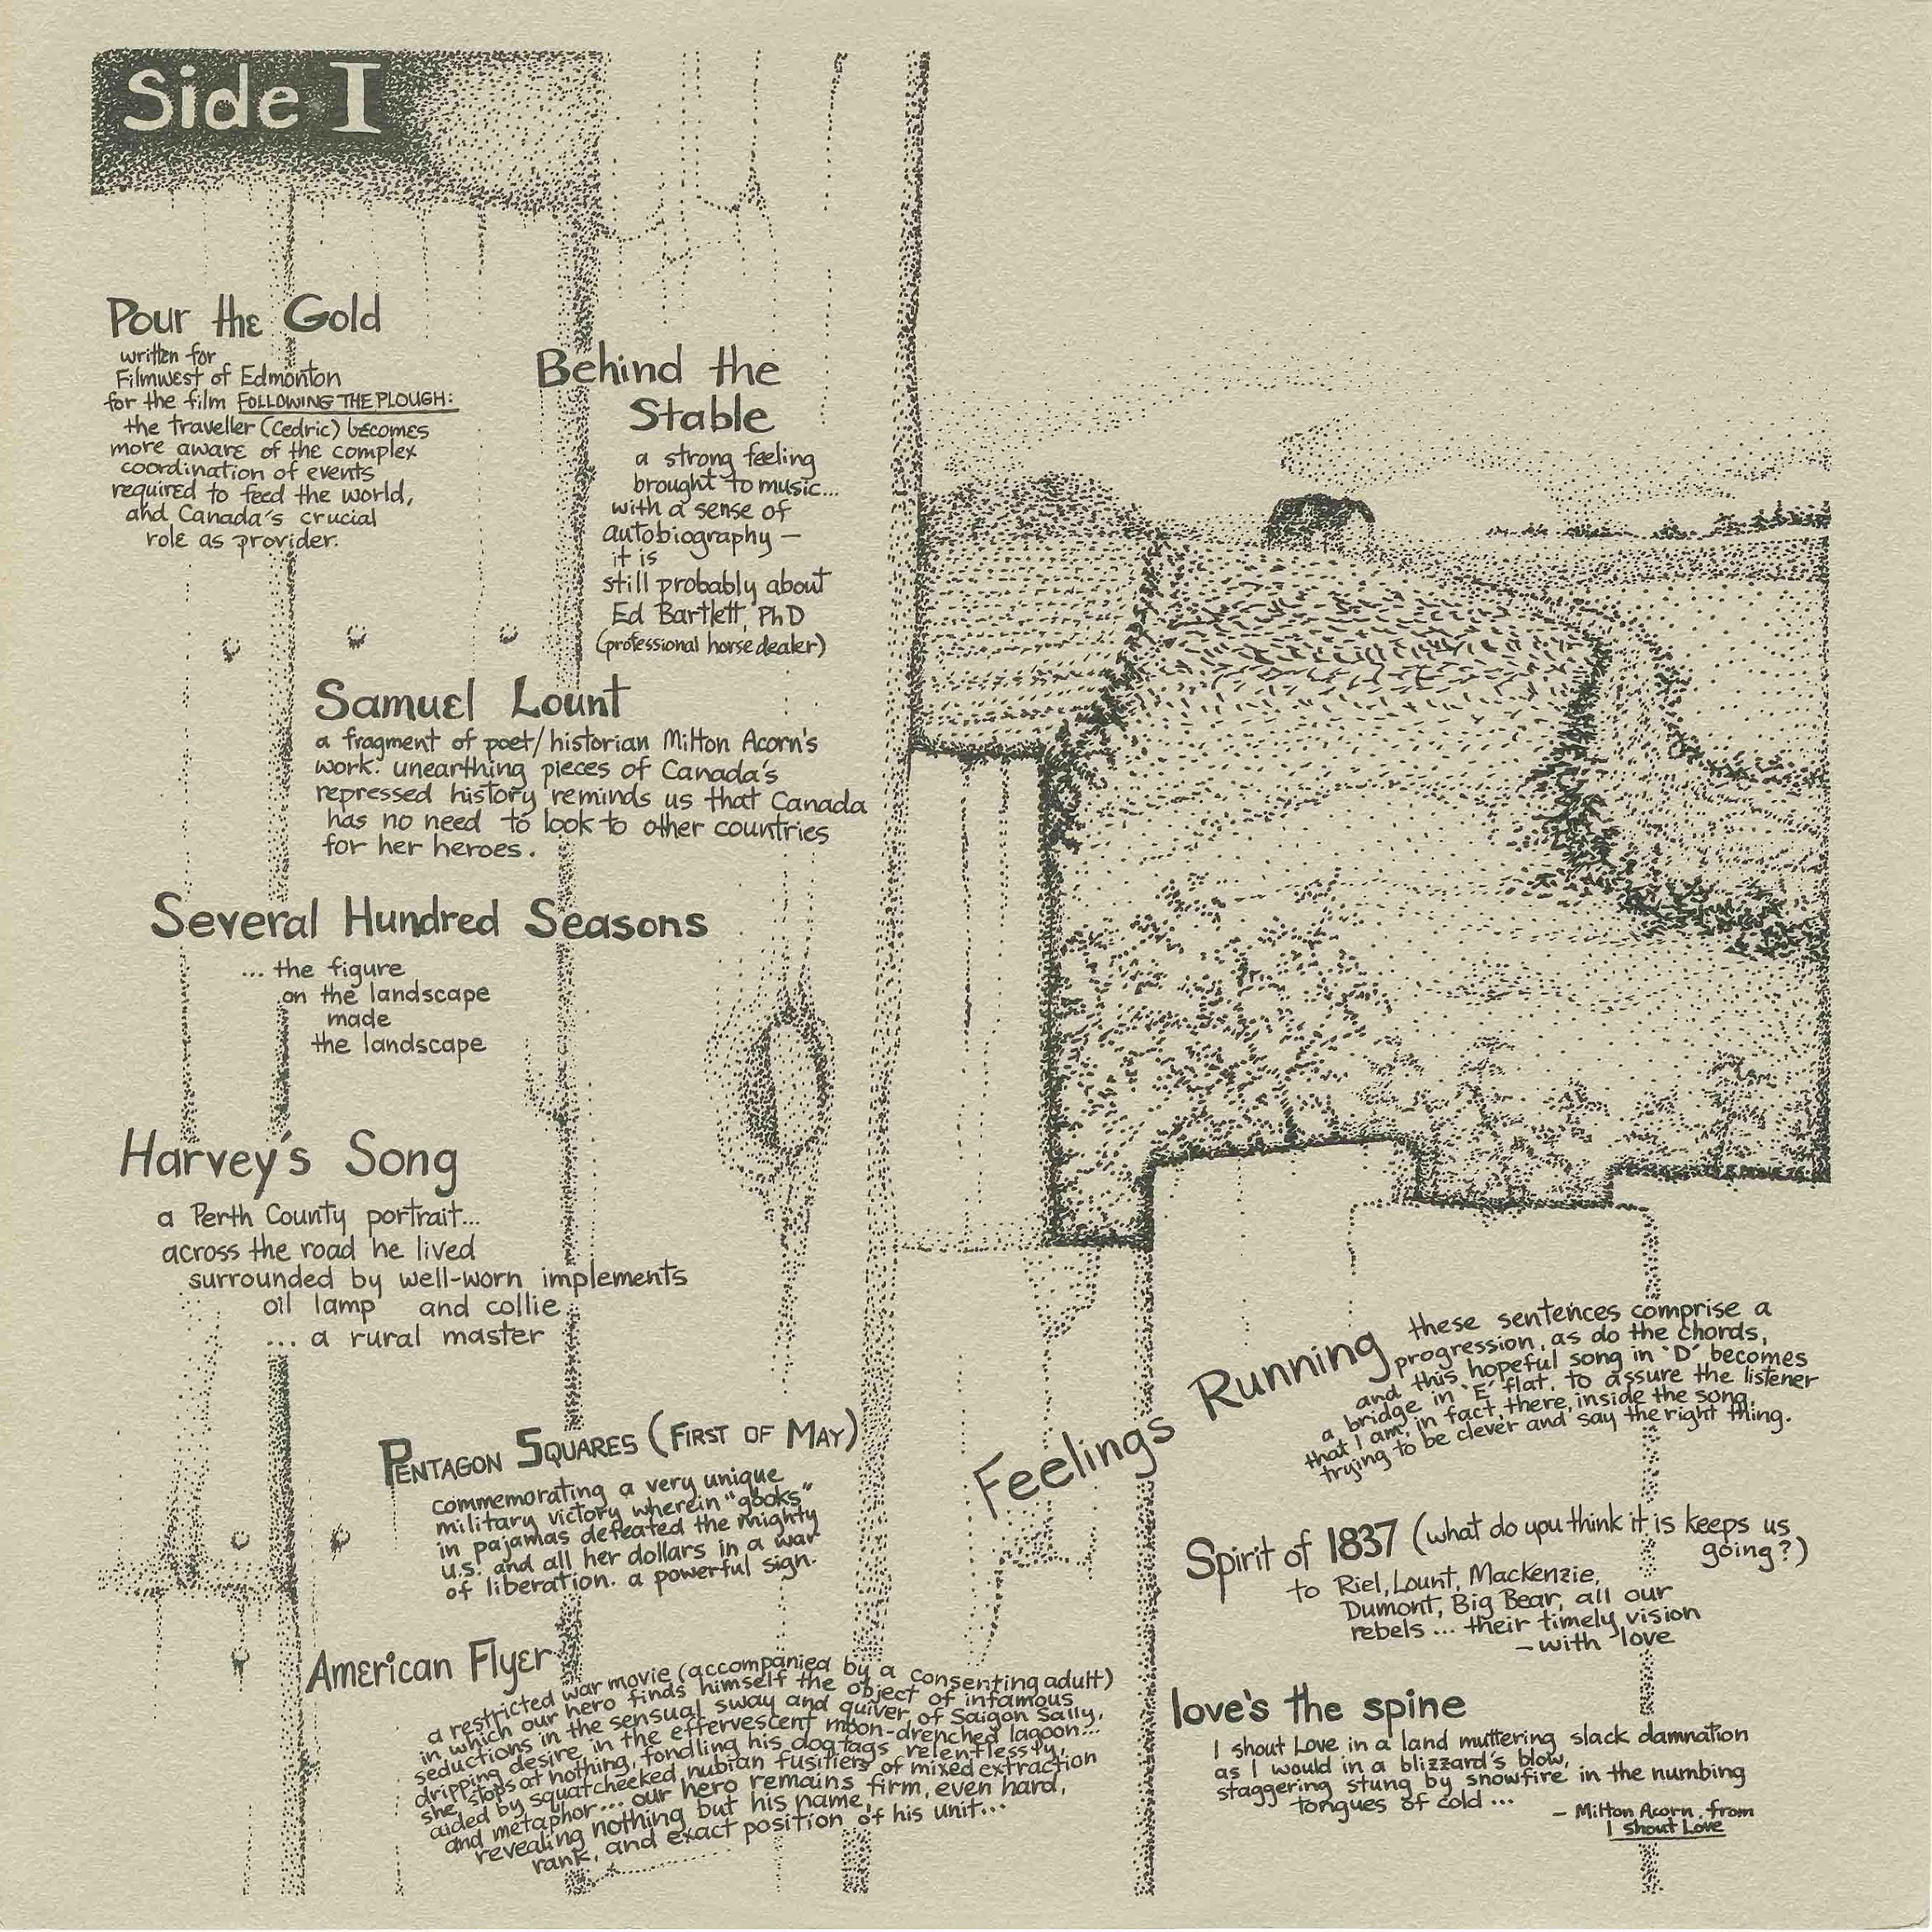 Side I
Pour the Gold
written for
Filmwest of Edmonton
for the film FOLLOWING THE PLOUGH:
the traveller (Cedric) becomes
more aware of the complex
coordination of events
required to feed the world,
and Canada's crucial
role as provider.
Behind the
Stable
a strong feeling
brought to music...
with a sense of
autobiography —
it is
still probably about
Ed Bartlett, PhD
(professional horse dealer)
Samuel Lount
a fragment of poet/historian Milton Acorn's
work. unearthing pieces of Canada's
repressed history reminds us that Canada
has no need to look to other countries
for her heroes.
Several Hundred Seasons
... the figure
on the landscape
made
the landscape
Harvey's Song
a Perth County portrait...
across the road he lived
surrounded by well-worn implements
oil lamp and collie
... a rural master
PENTAGON SQUARES (FIRST OF MAY)
commemorating a very unique
military victory wherein "gooks"
in pajamas defeated the mighty
u.s. and all her dollars in a war
of liberation. a powerful sign.
American Flyer
a restricted war movie (accompanied by a consenting adult)
in which our hero finds himself the object of infamous
seductions in the sensual sway and quiver of Saigon Sally,
dripping desire in the effervescent moon-drenched lagoon...
she stops at nothing, fondling his dogtags relentlessly,
aided by squatcheeked nubian fusiliers of mixed extraction
and metaphor... our hero remains firm, even hard,
revealing nothing but his name,
rank, and exact position of his unit...
Feelings Running
these sentences comprise a
progression, as do the chords,
and this hopeful song in 'D' becomes
a bridge in 'E' flat, to assure the listener
that I am, in fact, there, inside the song,
trying to be clever and say the right thing.
Spirit of 1837 (what do you think it is keeps us
going?)
to Riel, Lount, Mackenzie,
Dumont, Big Bear, all our
rebels ... their timely vision
— with love
love's the spine
I shout Love in a land muttering slack damnation
as I would in a blizzard's blow,
staggering stung by snowfire in the numbing
tongues of cold ...
— Milton Acorn, from
I Shout Love